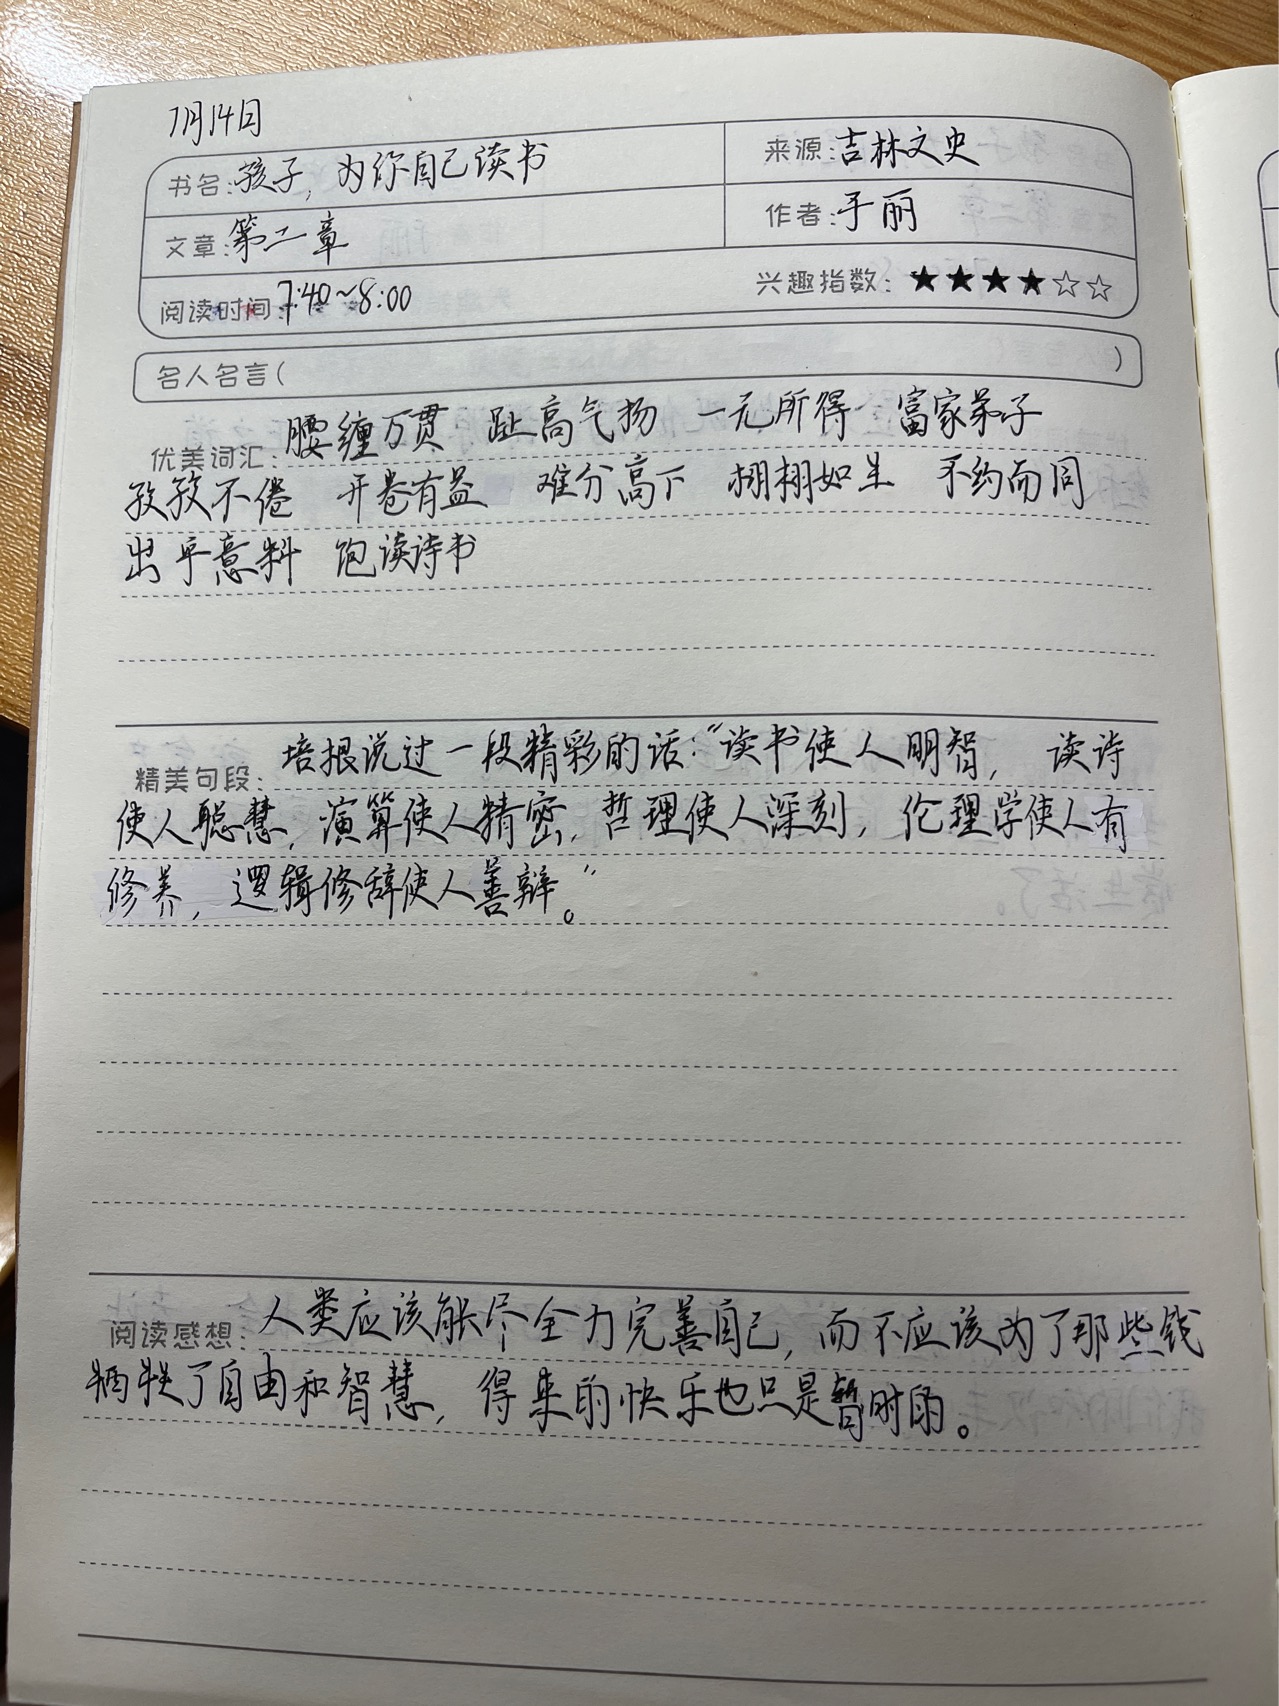 7月14日
书名:孩子,为你自己读书
来源:吉林文史
文章:第二章
作者:于丽
阅读时间:7:40~8:00
兴趣指数:★★★★☆☆
名人名言( )
优美词汇:腰缠万贯 趾高气扬 一无所得 富家弟子
孜孜不倦 开卷有益 难分高下 栩栩如生 不约而同
出乎意料 饱读诗书
精美句段:培根说过一段精彩的话:“读书使人明智, 读诗
使人聪慧,演算使人精密,哲理使人深刻,伦理学使人有
修养,逻辑修辞使人善辩。”
阅读感想:人类应该能尽全力完善自己,而不应该为了那些钱
牺牲了自由和智慧,得来的快乐也只是暂时的。